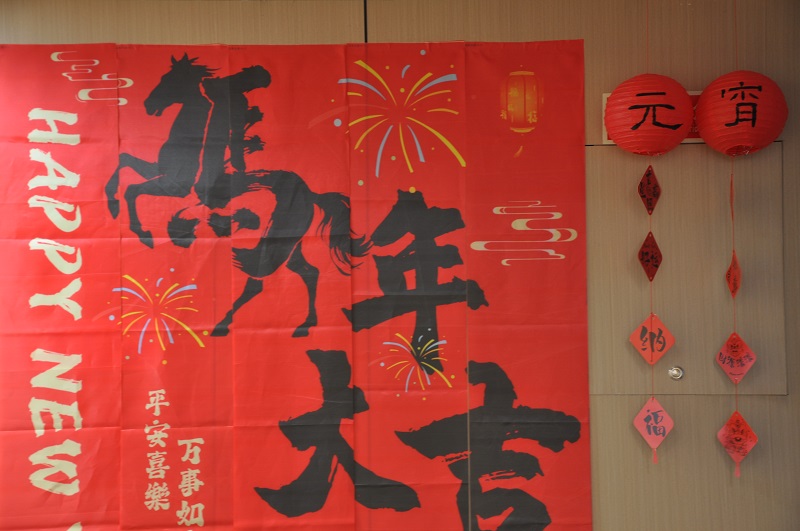 HAPPY NEW
馬年
大吉
平安喜樂
万事如
元宵
纳
福